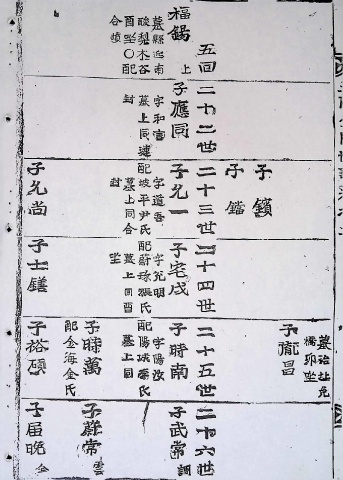 五回
福錫 上
墓縣西南
酸梨木谷
酉坐〇配
合墳
二十二世
子應同
字和宣
墓上同連
封
子鎖
子鐺
二十三世
子允一
字道吾
配坡平尹氏
墓上同合
封
子允尚
二十四世
子宅戊
字允明
配蔚珍張氏
墓上同酉
坐
子士鐥
墓治社免
獨卯坐
子胤昌
二十五世
子時南
字陽汝
配陽城李氏
墓上同
子時萬
配金海金氏
子裕碩
二十六世
子武常 調
子蔚常 雲
子屆晩 金